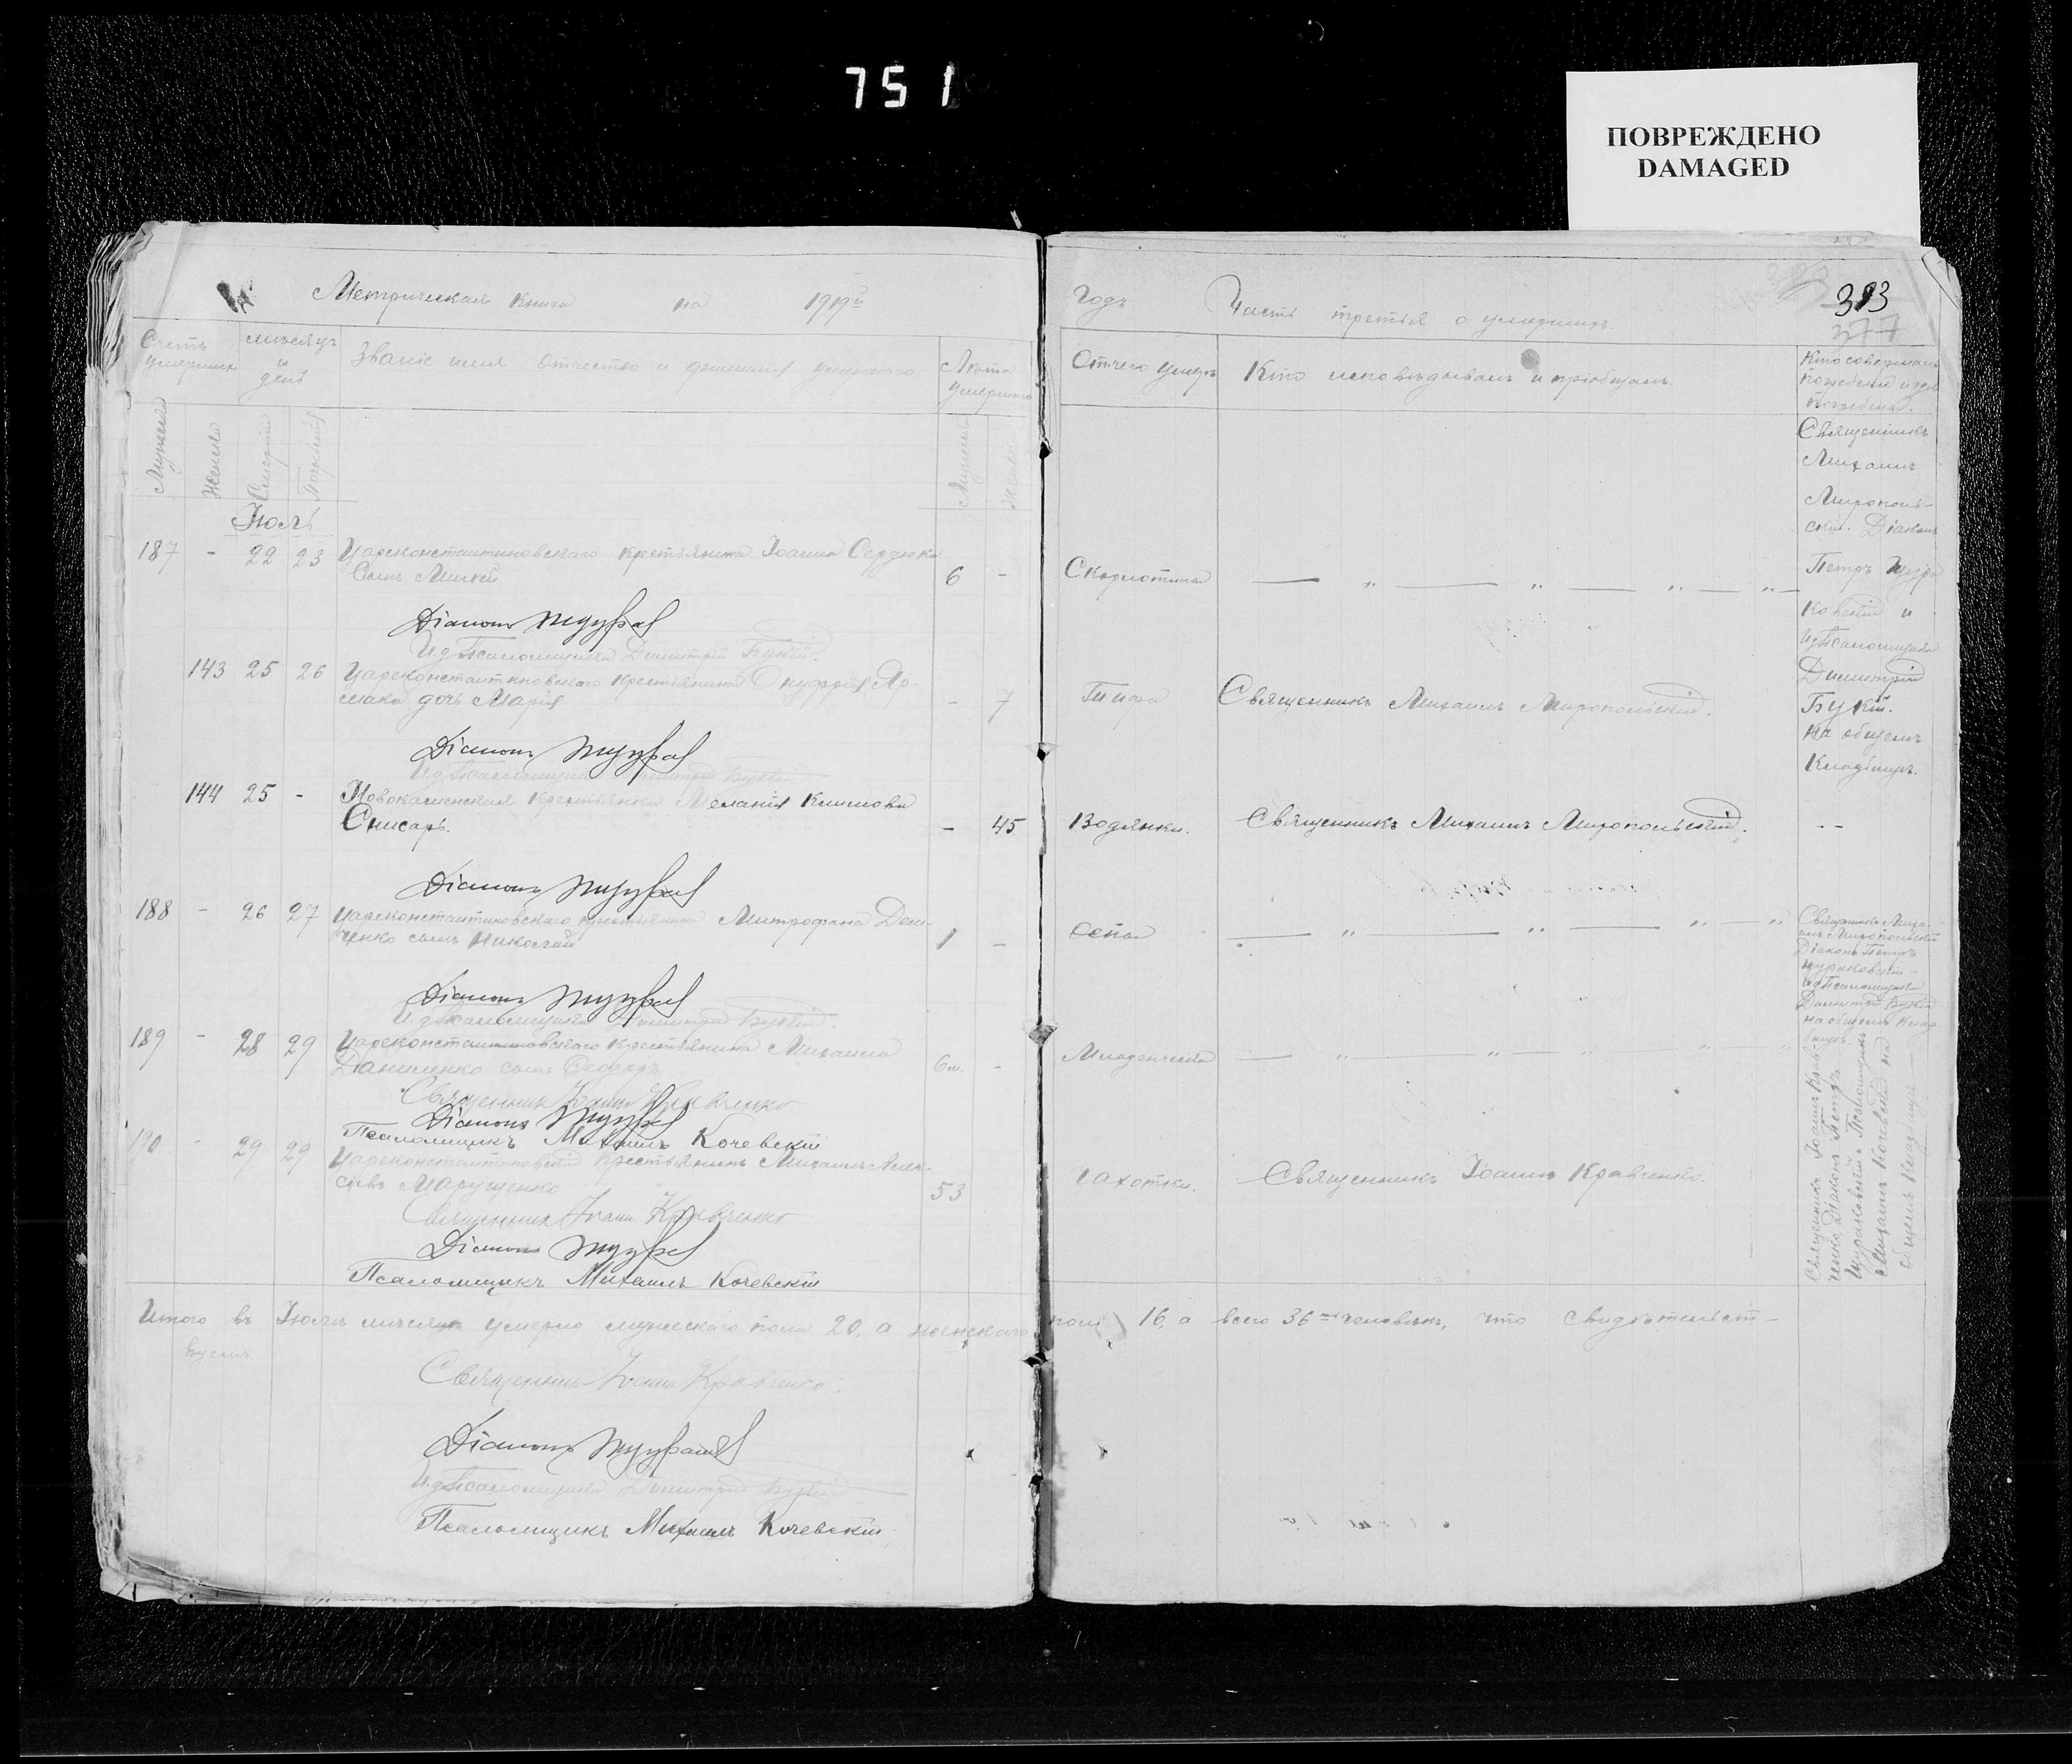 751
ПОВРЕЖДЕНО
DAMAGED
Метрическая книга на 1919й
Счетъ умершихъ
мѣсяцъ и день
Званіе имя отчество и фамилія умершаго
Лѣта умершаго
Мужеска
Женска
Смерти
Погребенія
Мужеска
Женска
Іюль
187 - 22 23 Цареконстантиновскаго крестьянина Іоанна Сердюка
сынъ 6 -
Діаконъ
И.д. Псаломщика Димитрій Букій.
143 25 26 Цареконстантиновскаго крестьянина Онуфрія Яр-
мака дочь Марія - 7
Діаконъ
И.д. Псаломщика Димитрій Букій
144 25 - Новокаменская крестьянка Меланія Климова
Снисарь. - 45
Діаконъ
188 - 26 27 Цареконстантиновскаго крестьянина Митрофана Дем-
ченко сынъ Николай 1 -
Діаконъ
И.д. Псаломщика Димитрій Букій.
189 - 28 29 Цареконстантиновскаго крестьянина Михаила
Даниленко сынъ Ѳеодоръ 6м. -
Священникъ Іоаннъ Кравченко
Діаконъ
Псаломщикъ Михаилъ Кочевскій
190 - 29 29 Цареконстантиновскій крестьянинъ Михаилъ Алек-
сіевъ Марущенко 53
Священник Іоанн Кравченко
Діаконъ
Псаломщикъ Михаилъ Кочевскій
Итого въ Іюлѣ мѣсяцѣ умерло мужескаго пола 20, а женскаго
вуемъ
Священник Іоанн Кравченко.
Діаконъ
И.д. Псаломщика Димитрій Букій
Псаломщикъ Михаилъ Кочевскій
годъ Часть третья о умершихъ. 313
377
Отчего умеръ
Кто исповѣдывалъ и пріобщалъ.
Кто совершалъ
погребеніе и гдѣ
погребены.
Священникъ
Михаилъ
Мирополь-
скій. Діаконъ
Петръ
ковскій и
и.д. Псаломщика
Димитрій
Букій.
На общемъ
Кладбищѣ.
Скарлотина
Тифа Священникъ Михаилъ Миропольскій.
Водянки. Священникъ Михаилъ Миропольскій. - -
Оспа
Священникъ Миха-
илъ Миропольскій
Діаконъ Петръ
и.д. Псаломщика
Димитрій Букій
на общемъ Клад
бищѣ.
Младенческа
Чахотки. Священникъ Іоаннъ Кравченко.
Священникъ Іоаннъ Крав-
ченко, Діаконъ Петръ
и Псаломщикъ
Михаилъ Кочевскій на
общемъ Кладбищѣ
пола 16, а всего 36 человѣкъ, что свидѣтельст-